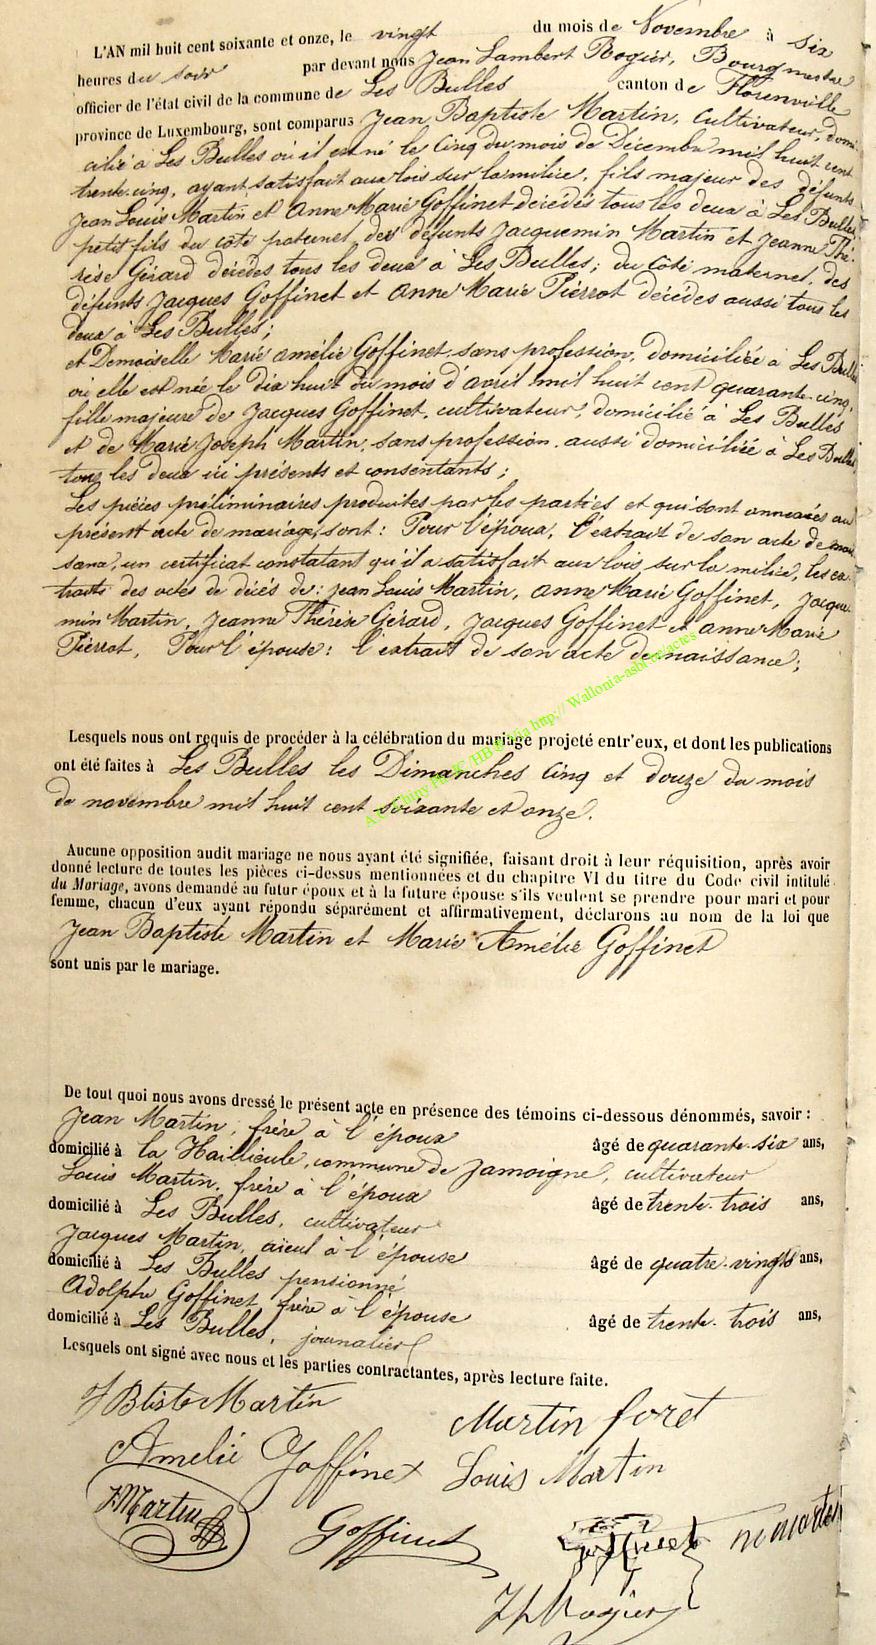 L'AN mil huit cent soixante et onze, le vingt du mois de Novembre à six
heures du soir par devant nous Jean Lambert Rogier, Bourgmestre
officier de l'état civil de la commune de Les Bulles canton de Florenville
province de Luxembourg, sont comparus Jean Baptiste Martin, cultivateur, domi
cilié à Les Bulles où il est né le cinq du mois de Décembre mil huit cent
trente-cinq, ayant satisfait aux lois sur la milice, fils majeur des défunts
Jean Louis Martin et Anne Marie Goffinet décédés tous les deux à Les Bulles
petit fils du coté paternel des défunts Jacquemin Martin et Jeanne Thé
rèse Gérard décédés tous les deux à Les Bulles; du coté maternel, des
défunts Jacques Goffinet et Anne Marie Pierrot décédés aussi tous les
deux à Les Bulles;
et Demoiselle Marie Amélie Goffinet, sans profession, domiciliée à Les Bulles
où elle est née le dix huit du mois d'avril mil huit cent quarante-cinq,
fille majeure de Jacques Goffinet, cultivateur, domicilié à Les Bulles
et de Marie Joseph Martin, sans profession, aussi domiciliée à Les Bulles
tous les deux ici présents et consentants;
Les pièces préliminaires produites par les parties et qui sont annexées au
présent acte de mariage, sont: Pour l'époux, l'extrait de son acte de nais
sance, un certificat constatant qu'il a satisfait aux lois sur la milice, les ex
traits des actes de décès de: Jean Louis Martin, Anne Marie Goffinet, Jacque
min Martin, Jeanne Thérèse Gérard, Jacques Goffinet et Anne Marie
Pierrot, Pour l'épouse: l'extrait de son acte de naissance;
Lesquels nous ont requis de procéder à la célébration du mariage projeté entr'eux, et dont les publications
ont été faites à Les Bulles les Dimanches cinq et douze du mois
de novembre mil huit cent soixante et onze.
Aucune opposition audit mariage ne nous ayant été signifiée, faisant droit à leur réquisition, après avoir
donné lecture de toutes les pièces ci-dessus mentionnées et du chapitre VI du titre du Code civil intitulé
du Mariage, avons demandé au futur époux et à la future épouse s'ils veulent se prendre pour mari et pour
femme, chacun d'eux ayant répondu séparément et affirmativement, déclarons au nom de la loi que
Jean Baptiste Martin et Marie Amélie Goffinet
sont unis par le mariage.
De tout quoi nous avons dressé le présent acte en présence des témoins ci-dessous dénommés, savoir :
Jean Martin, frère à l'époux âgé de quarante-six ans,
domicilié à la Hailleule, commune de Jamoigne, cultivateur
Louis Martin, frère à l'époux âgé de trente-trois ans,
domicilié à Les Bulles, cultivateur
Jacques Martin, aïeul à l'épouse âgé de quatre-vingts ans,
domicilié à Les Bulles pensionné
Adolphe Goffinet frère à l'épouse âgé de trente-trois ans,
domicilié à Les Bulles, journalier
Lesquels ont signé avec nous et les parties contractantes, après lecture faite.
J Btiste Martin
Martin foret
Amelie Goffinet Louis Martin
J Martin Goffinet